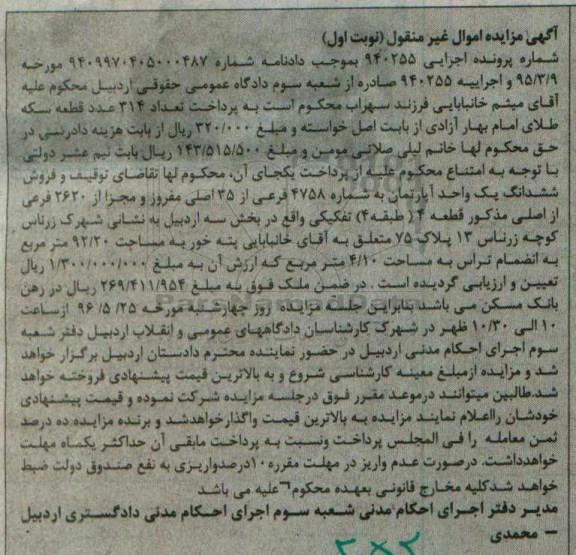 آگهی مزایده اموال غیر منقول (نوبت اول)
شماره پرونده اجرایی ۹۴۰۲۵۵ بموجب دادنامه شماره ۹۴۰۹۹۷۰۴۰۵۰۰۰۴۸۷ مورخه
۹۵/۳/۹ و اجراییه ۹۴۰۲۵۵ صادره از شعبه سوم دادگاه عمومی حقوقی اردبیل محکوم علیه
آقای میثم خانبابایی فرزند سهراب محکوم است به پرداخت تعداد ۳۱۴ عدد قطعه سکه
طلای امام بهار آزادی از بابت اصل خواسته و مبلغ ۳۲۰/۰۰۰ ریال از بابت هزینه دادرسی در
حق محکوم لها خانم لیلی صلاتی مومن و مبلغ ۱۴۳/۵۱۵/۵۰۰ ریال بابت نیم عشر دولتی
با توجه به امتناع محکوم علیه از پرداخت یکجای آن، محکوم لها تقاضای توقیف و فروش
ششدانگ یک واحد آپارتمان به شماره ۴۷۵۸ فرعی از ۳۵ اصلی مفروز و مجزا از ۲۶۲۰ فرعی
از اصلی مذکور قطعه ۴ ( طبقه۴) تفکیکی واقع در بخش سه اردبیل به نشانی شهرک زرناس
کوچه زرناس ۱۳ پلاک ۷۵ متعلق به آقای خانبابایی پته خور به مساحت ۹۲/۲۰ متر مربع
به انضمام تراس به مساحت ۴/۱۰ متر مربع که ارزش آن به مبلغ ۱/۳۰۰/۰۰۰/۰۰۰ ریال
تعیین و ارزیابی گردیده است . در ضمن ملک فوق به مبلغ ۲۶۹/۴۱۱/۹۵۴ ریال در رهن
بانک مسکن می باشد بنابراین جلسه مزایده روز چهارشنبه مورخه ۲۵/ ۵/ ۹۶ ازساعت
۱۰ الی ۱۰/۳۰ ظهر در شهرک کارشناسان دادگاههای عمومی و انقلاب اردبیل دفتر شعبه
سوم اجرای احکام مدنی اردبیل در حضور نماینده محترم دادستان اردبیل برگزار خواهد
شد و مزایده ازمبلغ معینه کارشناسی شروع و به بالاترین قیمت پیشنهادی فروخته خواهد
شد.طالبین میتوانند درموعد مقرر فوق درجلسه مزایده شرکت نموده و قیمت پیشنهادی
خودشان رااعلام نمایند مزایده به بالاترین قیمت واگذارخواهدشد و برنده مزایده ده درصد
ثمن معامله را فی المجلس پرداخت ونسبت به پرداخت مابقی آن حداکثر یکماه مهلت
خواهدداشت. درصورت عدم واریز در مهلت مقرره۱۰درصدواریزی به نفع صندوق دولت ضبط
خواهد شدکلیه مخارج قانونی بعهده محکوم علیه می باشد
مدیر دفتر اجرای احکام مدنی شعبه سوم اجرای احکام مدنی دادگستری اردبیل
– محمدی
۲×۲